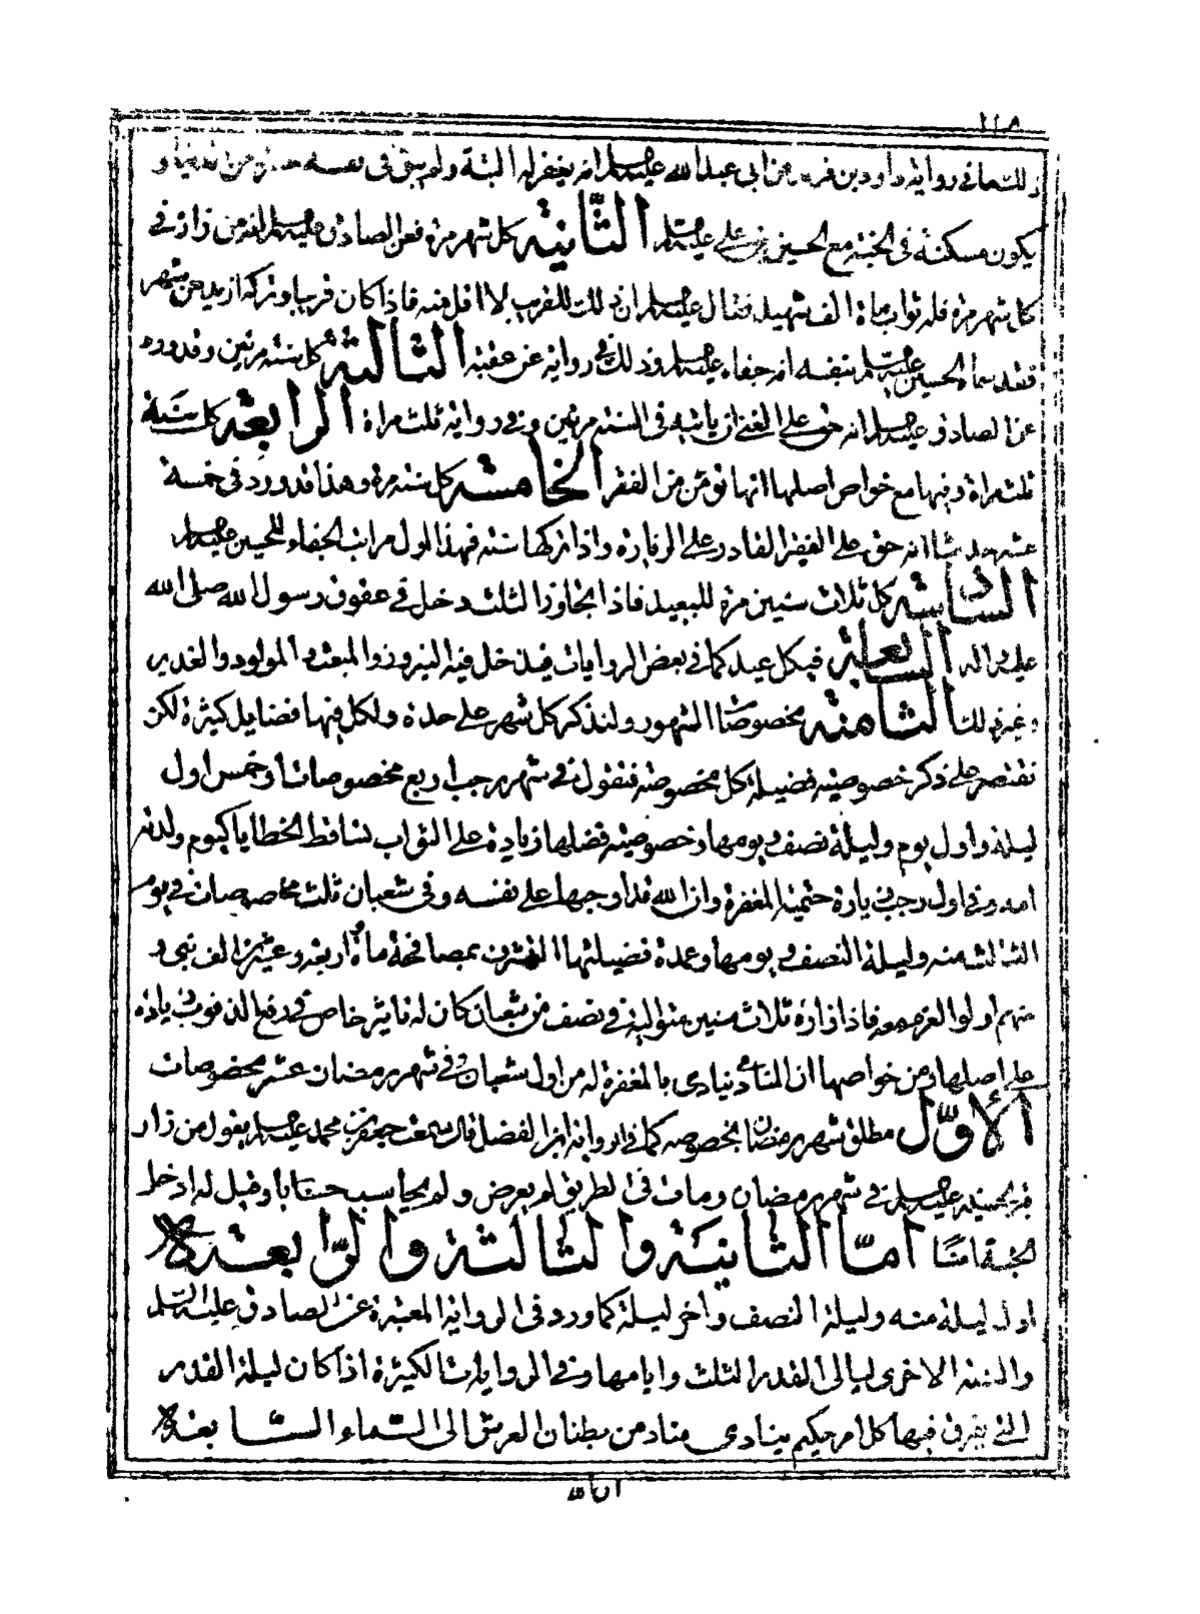 ١١٨
ذلك كما في رواية داود بن فرقد عن ابي عبدالله عليه السلم انه يغفر له البتة ولم يبق في نفسه من الدنيا و
يكون مسكنه في الجنة مع الحسين بن علي عليه السلم الثانية كل شهر مرة فعن الصادق عليه السلم انه من زاره في
كل شهر مرة فله ثواب مائة الف شهيد فقال عليه السلم ان ذلك للقريب لا اقل منه فاذا كان قريبا وتركه ازيد من شهر
فقد سماه الحسين عليه السلم بنفسه انه جفاه عليه السلم وذلك في رواية عن عقبة الثالثة كل سنة مرتين وقد ورد
عن الصادق عليه السلم انه حق على الغني ان ياتيه في السنة مرتين وفي رواية ثلث مراة الرابعة كل سنة
ثلث مراة وفيها مع خواص اصلها انها تؤمن من الفقر الخامسة كل سنة مرة وهذا قد ورد في خمسة
عشر حديثا انه حق على الفقير القادر على الزيارة واذا تركها سنة فهذا اول مراتب الجفاء للحسين عليه السلم
السادسة كل ثلاث سنين مرة للبعيد فاذا تجاوز الثلث دخل في عقوق رسول الله صلى الله
عليه واله السابعة في كل عيد كما في بعض الروايات فيدخل فيه النيروز والمبعث والمولود والغدير
وغير ذلك الثامنة مخصوصات الشهور ولنذكر كل شهر على حدة ولكل فيها فضايل كثيرة لكن
نقتصر على ذكر خصوصية فضيلة كل مخصوصة فنقول في شهر رجب اربع مخصوصات او خمس اول
ليلة واول يوم وليلة نصف ويومها وخصوصية فضلها زيادة على الثواب تساقط الخطايا كيوم ولدته
امه وفي اول رجب زيارة حتمية المغفرة وان الله قد اوجبها على نفسه وفي شعبان ثلث مخاصصات في يوم
الثالث منه وليلة النصف ويومها وعمدة فضيلتها التشرف بمصافحة مائة اربعة وعشرين الف نبي و
منهم اولوا العزم جمعه فاذا زاره ثلاث سنين متوالية في نصف من شعبان كان له تاثير خاص في رفع الذنوب زيادة
على اصلها ومن خواصها ان المنادي ينادي بالمغفرة له من اول شعبان وفي شهر رمضان عشر مخصوصات
الاوّل مطلق شهر رمضان بخصوصه كما في رواية ابن الفضل قال سمعت جعفر بن محمد عليه السلم يقول من زار
قبر الحسين عليه السلم في شهر رمضان ومات في الطريق لم يعرض ولم يحاسب حسابا وقيل له ادخل
الجنة امنا امّا الثانية والثالثة والرابعة
اول ليلة منه وليلة النصف واخر ليلة كما ورد في الرواية المعتبرة عن الصادق عليه السلم
والستة الاخرى ليالي القدر الثلث وايامها وفي الروايات الكثيرة اذا كان ليلة القدر
التي يفرق فيها كل امر حكيم ينادي مناد من بطنان العرش الى السماء السابعة
ان الله